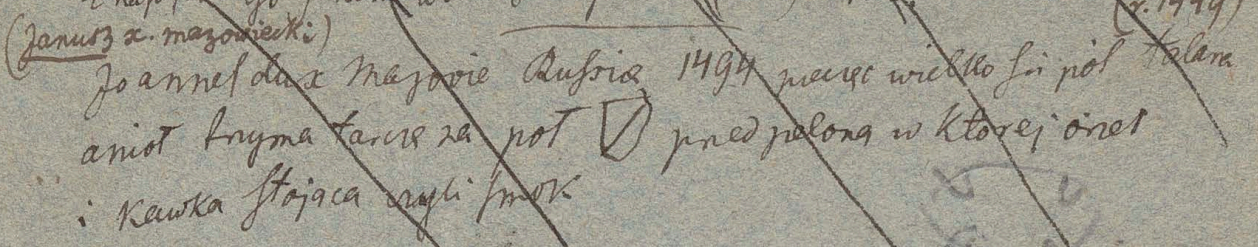 (r. 1449)
(Janusz x. mazowiecki)
Joannes dux Mazovie Russie 1494 pieczęć wielkości pół talara
anioł trzyma tarcze na poł przedzielona w ktorej orzeł
i kawka stojąca czyli smok